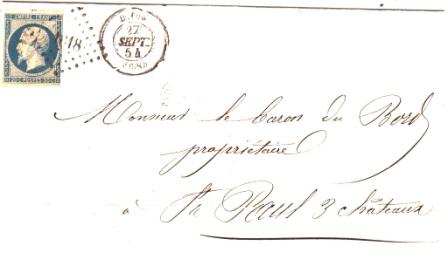 EMPIRE FRANC
20 C POSTES 20 C
27
SEPT.
54
Monsieur le baron du Bord
propriétaire
à St Paul 3 châteaux